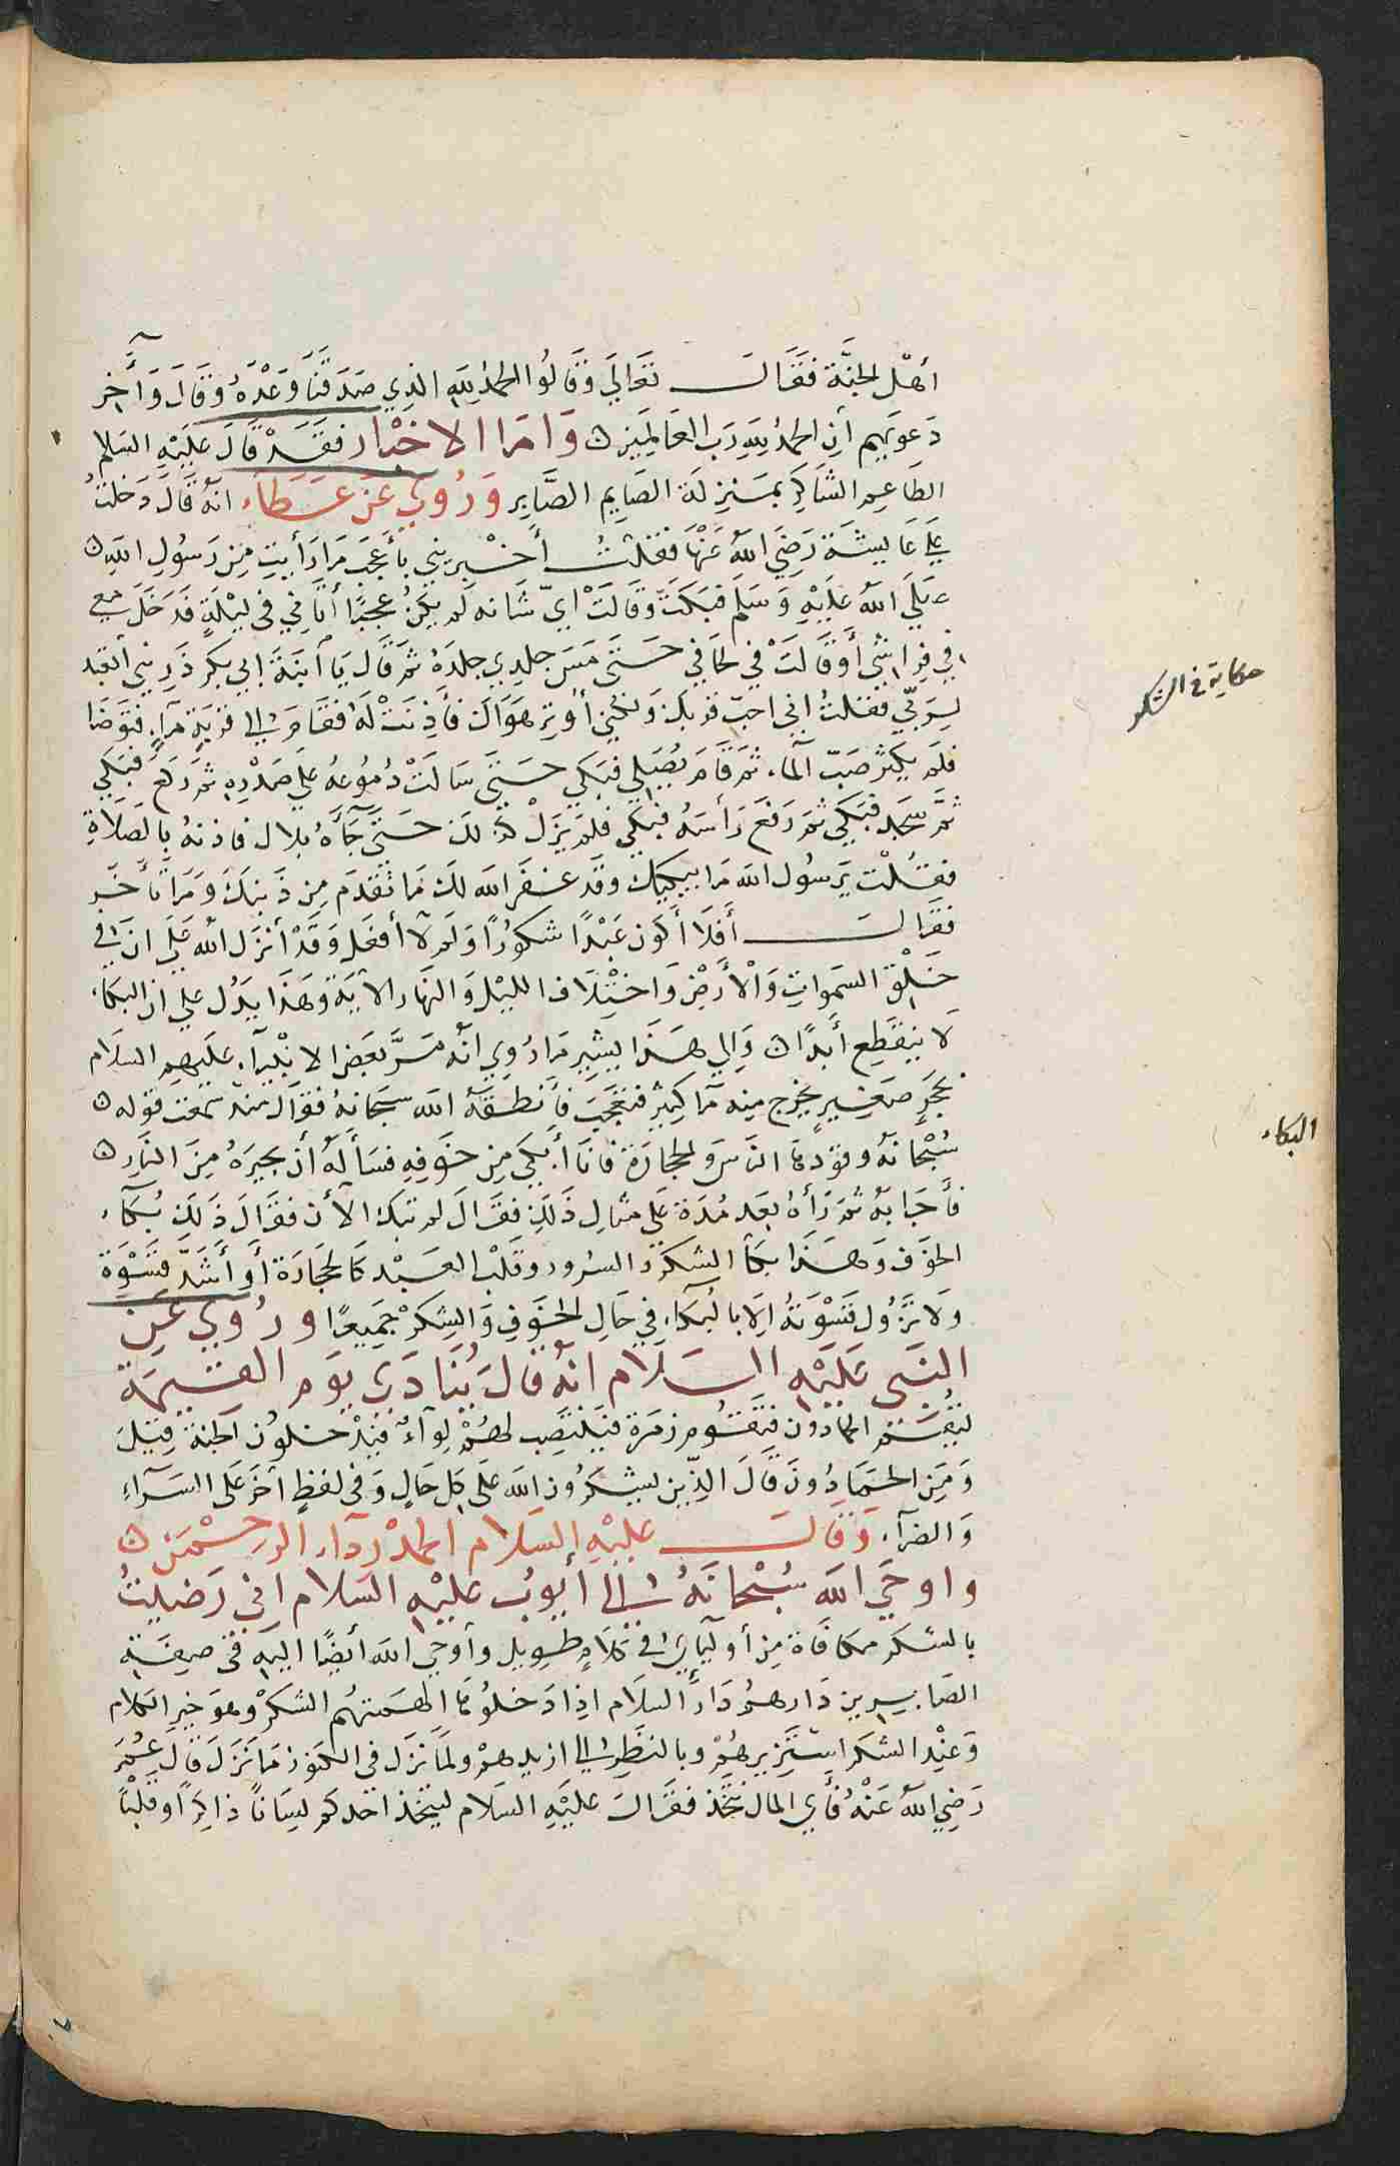 أهل الجنة فقال تعالى وقالوا الحمد لله الذي صدقنا وعده وقال وآخر
دعويهم أن الحمد لله رب العالمين واما الاخبار فقد قال عليه السلام
الطاعم الشاكر بمنزلة الصايم الصابر وروي عن عطاء انه قال دخلت
علي عايشة رضي الله عنها فقلت أخبريني بأعجب ما رأيت من رسول الله
صلي الله عليه وسلم فبكت وقالت أي شانه لم يكن عجبًا أتاني في ليلة فدخل معي
في فراشي أو قالت في لحافي حتى مس جلدي جلده ثم قال يا أبنة ابي بكر ذريني أتعبد
لربي فقلت اني احب قربك ولكني أوثر هواك فأذنت له فقام الي قربة مآء فتوضا
فلم يكثر صب المآء ثم قام يصلي فبكي حتى سالت دموعه علي صدره ثم ركع فبكي
ثم سجد فبكي ثم رفع رأسه فبكي فلم يزل كذلك حتى جآءه بلال فاذنه بالصلاة
فقلت يرسول الله ما يبكيك وقد غفر الله لك ما تقدم من ذنبك وما تأخر
فقال أفلا أكون عبدًا شكورًا ولم لا أفعل وقد أنزل الله علي ان في
خلق السموات والأرض واختلاف الليل والنهار الآية وهذا يدل علي ان البكاء
لا ينقطع أبدًا والي هذا يشير ما روي انه مر بعض الانبيآء عليهم السلام
بحجر صغير يخرج منه مآ كثير فتعجب فأنطقه الله سبحانه فقال منذ سمعت قوله
سبحانه وقودها الناس والحجارة فانا أبكي من خوفه فسأله أن يجيره من النار
فأجابه ثم رأه بعد مدة على مثل ذلك فقال لم تبك الآن فقال ذلك بكآء
الخوف وهذا بكآ الشكر والسرور وقلب العبد كالحجارة أو أشد قسوة
ولا تزول قسوته الا بالبكاء في حال الخوف والشكر جميعًا وروي عن
النبي عليه السلام انه قال ينادى يوم القيمة
ليقم الحمادون فتقوم زمرة فينصب لهم لوآء فيدخلون الجنة قيل
ومن الحمادون قال الذين يشكرون الله على كل حال وفي لفظ آخر على السرآء
والضرآء وقال عليه السلام الحمد ردآء الرحمن
واوحي الله سبحانه الي أيوب عليه السلام اني رضيت
بالشكر مكافاة من أوليآيي في كلام طويل وأوحي الله أيضًا اليه في صفة
الصابرين دارهم دار السلام اذا دخلوها الهمتهم الشكر وهو خير الكلام
وعند الشكر استزيدهم وبالنظر الي ازيدهم ولما نزل في الكنوز ما نزل قال عمر
رضي الله عنه فأي المال نتخذ فقال عليه السلام ليتخذ احدكم لسانًا ذاكرًا وقلبًا
حكاية في الشكر
البكاء